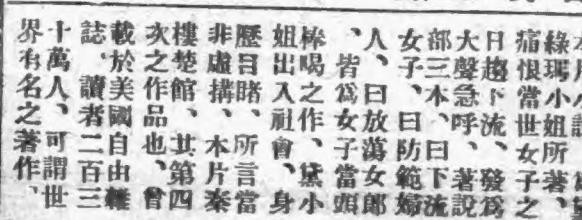 綠瑪小姐所著、
痛恨當世女子之
日趨下流、發爲
大聲急呼、著說
部三本、曰下流
女子、曰防範婦
人、曰放蕩女郎
、皆爲女子當頭
棒喝之作、黛小
姐出入社會、身
歷目睹、所言當
非虛搆、本片秦
樓楚館、其第四
次之作品也、曾
載於美國自由雜
誌、讀者二百三
十萬人、可謂世
界有名之著作、